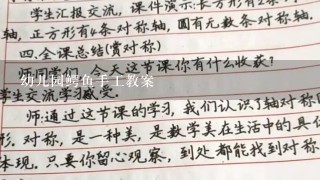 学生汇报交流，课件演示:长方形有2条
轴，正方形有4条对称轴，圆有无数条对称轴.
四.全课总结(赏对称)
今天这节课你有什么收获?
幼儿园鳄鱼手工教案
学生交流学习感受.
师:通过这节课的学习，我们认识了轴对称图
形.对称，是一种美，是数学美在生活中的具体
体现.只要你留心观察，到处都能找到对称